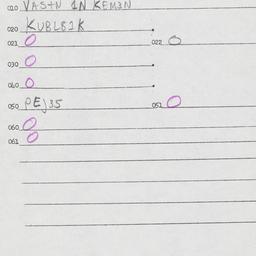 010 VASTN IN KEMAN
020 KUBLBIK
021 O 022 O
030 O
040 O
050 PEJ35 051 O
060 O
061 O